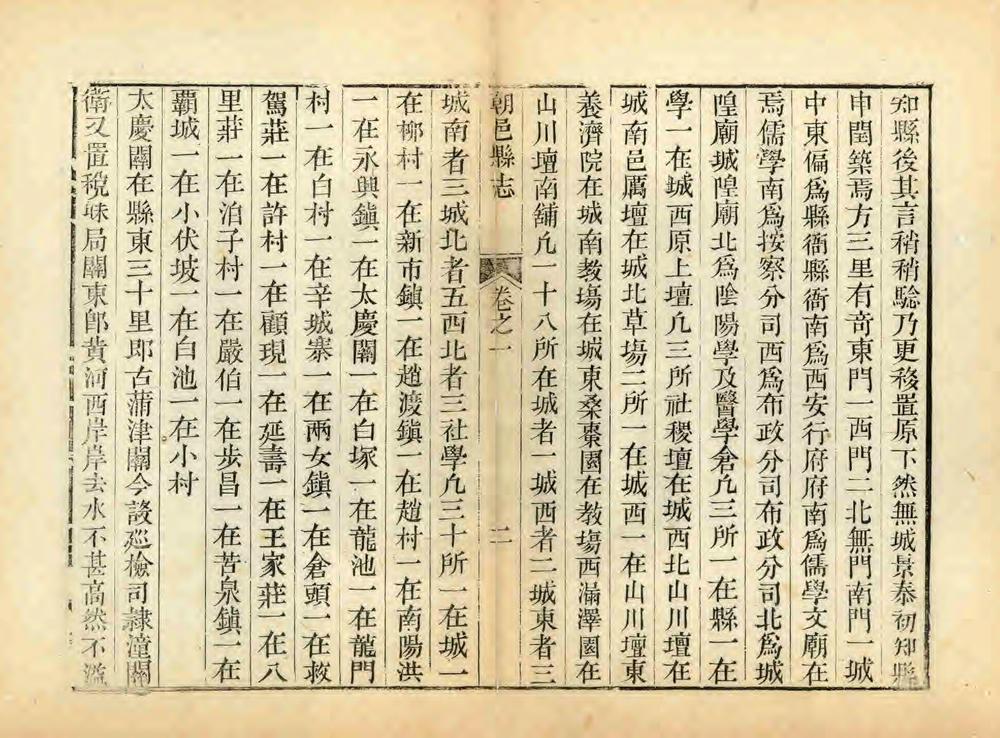 知縣後其言稍稍驗乃更移置原下然無城景泰初知縣
申閏築焉方三里有奇東門一西門二北無門南門一城
中東偏爲縣衙縣衙南爲西安行府府南爲儒學文廟在
焉儒學南爲按察分司西爲布政分司布政分司北爲城
隍廟城隍廟北爲陰陽學及醫學倉凢三所一在縣一在
學一在城西原上壇凢三所社稷壇在城西北山川壇在
城南邑厲壇在城北草塲二所一在城西一在山川壇東
養濟院在城南教塲在城東桑棗園在教塲西漏澤園在
山川壇南舖凢一十八所在城者一城西者二城東者三
朝邑縣志
卷之一
二
城南者三城北者五西北者三社學凢三十所一在城一
在柳村一在新市鎮一在趙渡鎮一在趙村一在南陽洪
一在永興鎮一在太慶關一在白塚一在龍池一在龍門
村一在白村一在辛城寨一在兩女鎮一在倉頭一在救
駕莊一在許村一在顧現一在延壽一在王家莊一在八
里莊一在泊子村一在嚴伯一在步昌一在苦泉鎮一在
覇城一在小伏坡一在白池一在小村
大慶關在縣東三十里即古蒲津關今設廵檢司隷潼關
衛又置稅課局關東郎黄河西岸岸去水不甚高然不溢